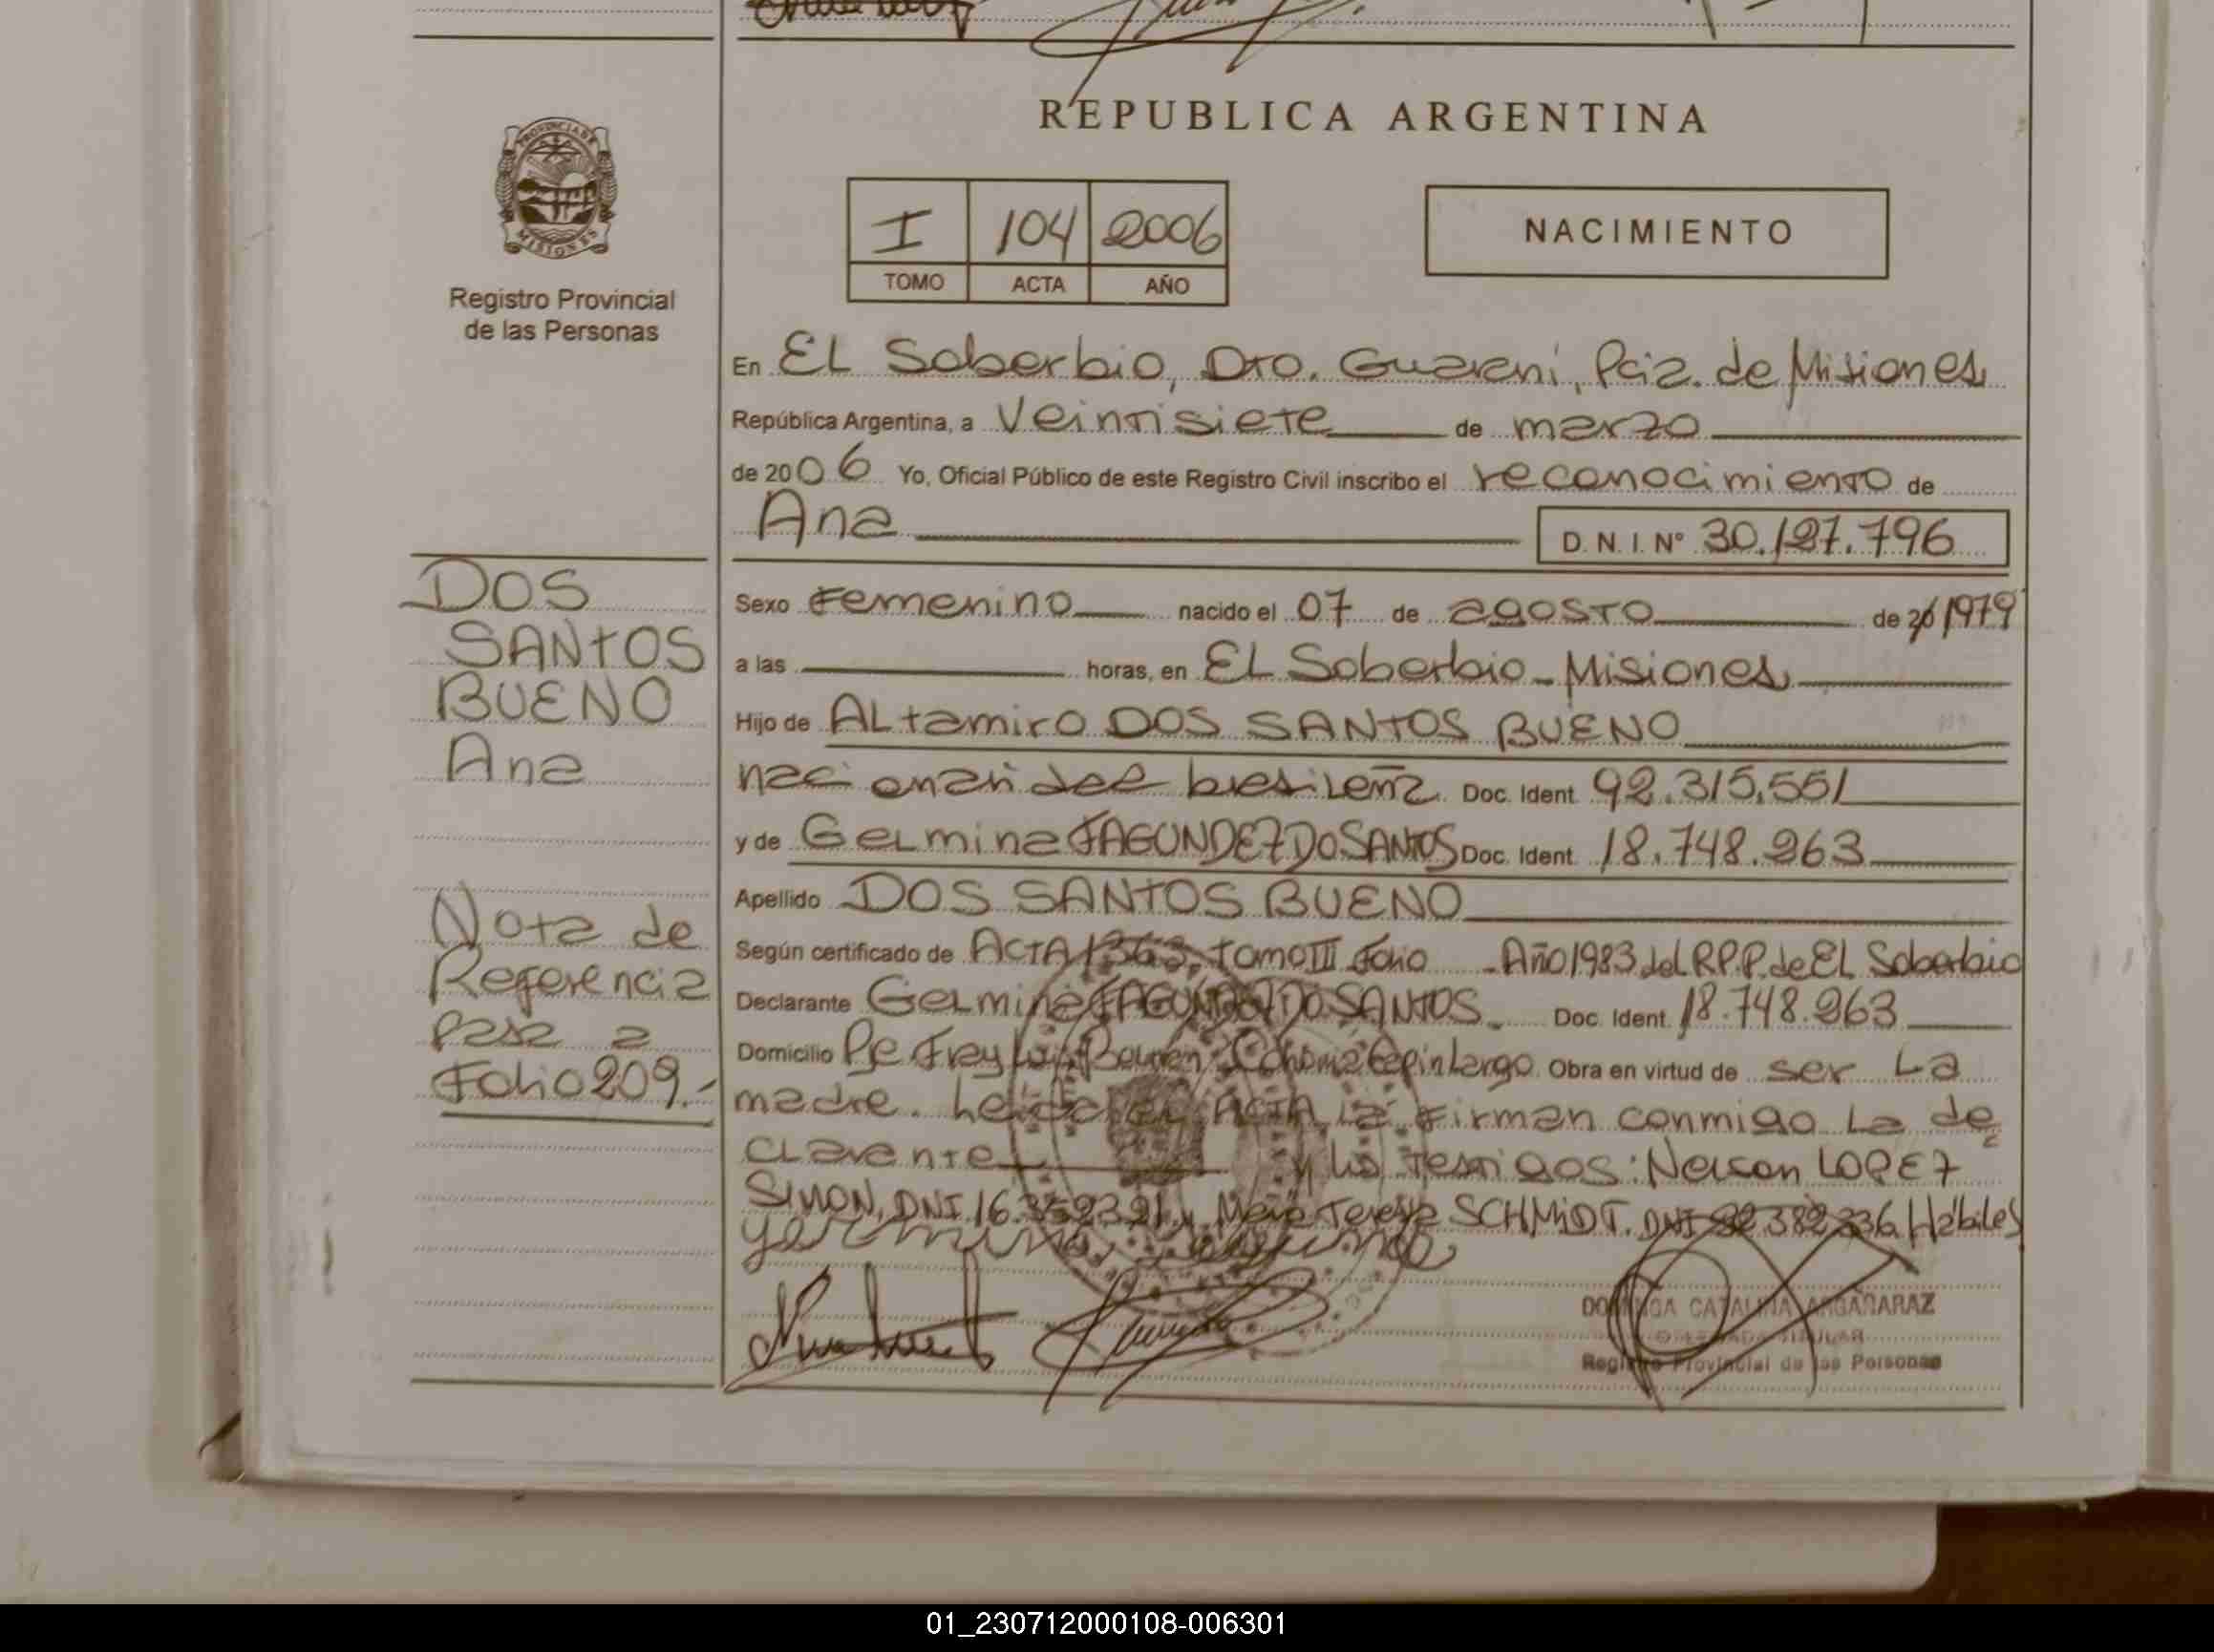 REPUBLICA ARGENTINA
PROVINCIA DE
MISIONES
Registro Provincial
de las Personas
I 104 2006
TOMO ACTA AÑO
NACIMIENTO
En EL Soberbio, Dto. Guarani, Pcia. de Misiones
República Argentina, a Veintisiete de marzo
de 2006 Yo, Oficial Público de este Registro Civil inscribo el reconocimiento de
Ana D.N.I. Nº 30.127.796
Sexo Femenino nacido el 07 de agosto de 20 1979
a las horas, en EL Soberbio - Misiones
Hijo de ALtamiro DOS SANTOS BUENO
nacionalidad brasileña Doc. Ident. 92.315.551
y de GeLmina FAGUNDEZ DO SANTOS Doc. Ident. 18.748.263
Apellido DOS SANTOS BUENO
Según certificado de ACTA 1363, tomo III Folio - Año 1983 del R.P.P. de EL Soberbio
Declarante GeLmina FAGUNDEZ DO SANTOS. Doc. Ident. 18.748.263
Domicilio Pje Fray Luis Obra en virtud de ser La
madre. Leida el ACTA La Firman conmigo La de
cLarante y los testigos: Nelson LOPEZ
SIMON, DNI 16. y Maria Teresa SCHMIDT. DNI 22.382.236. Hábiles
DOMINGA CATALINA ARGAÑARAZ
DELEGADA TITULAR
Registro Provincial de las Personas
DOS
SANTOS
BUENO
Ana
Nota de
Referencia
pasa a
Folio 209.-
01_230712000108-006301